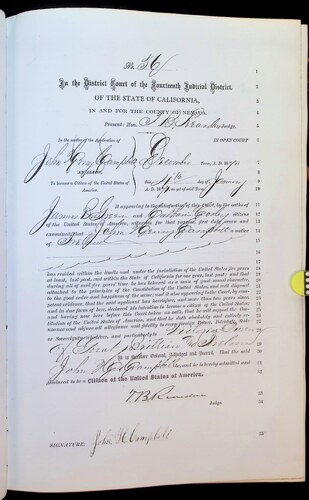 No. 56
In the District Court of the Fourteenth Judicial District,
OF THE STATE OF CALIFORNIA,
IN AND FOR THE COUNTY OF NEVADA.
Present: Hon. T. B. Reardon Judge.
In the matter of the Application of IN OPEN COURT
John Henry Campbell December Term, A. D. 1870
AN ALIEN,
To become a Citizen of the United States of America. this 4th day of January
A. D. 1871 as yet of said Term.
It appearing to the satisfaction of this Court, by the oaths of
James and citizens
of the United States of America, witnesses for that purpose, first duly sworn and
examined that John Henry Campbell a native
of Ireland
has resided within the limits and under the jurisdiction of the United States five years
at least, last past, and within the State of California for one year, last past; and that
during all of said five years' time he has behaved as a man of good moral character,
attached to the principles of the Constitution of the United States, and well disposed
to the good order and happiness of the same; and it also appearing to the Court, by competent
evidence, that the said applicant has heretofore, and more than two years since,
and in due form of law, declared his intention to become a citizen of the United States;
and having now here before this Court taken an oath, that he will support the Constitution
of the United States of America, and that he doth absolutely and entirely renounce
and abjure all allegiance and fidelity to every foreign Prince, Potentate, State
or Sovereignty whatever, and particularly to Victoria Queen
of Great Brittain & Ireland
It is therefore Ordered, Adjudged and Decreed, That the said
John H Campbell be, and he is hereby admitted and
declared to be a Citizen of the United States of America.
T B Reardon
Judge.
SIGNATURE: John H Campbell